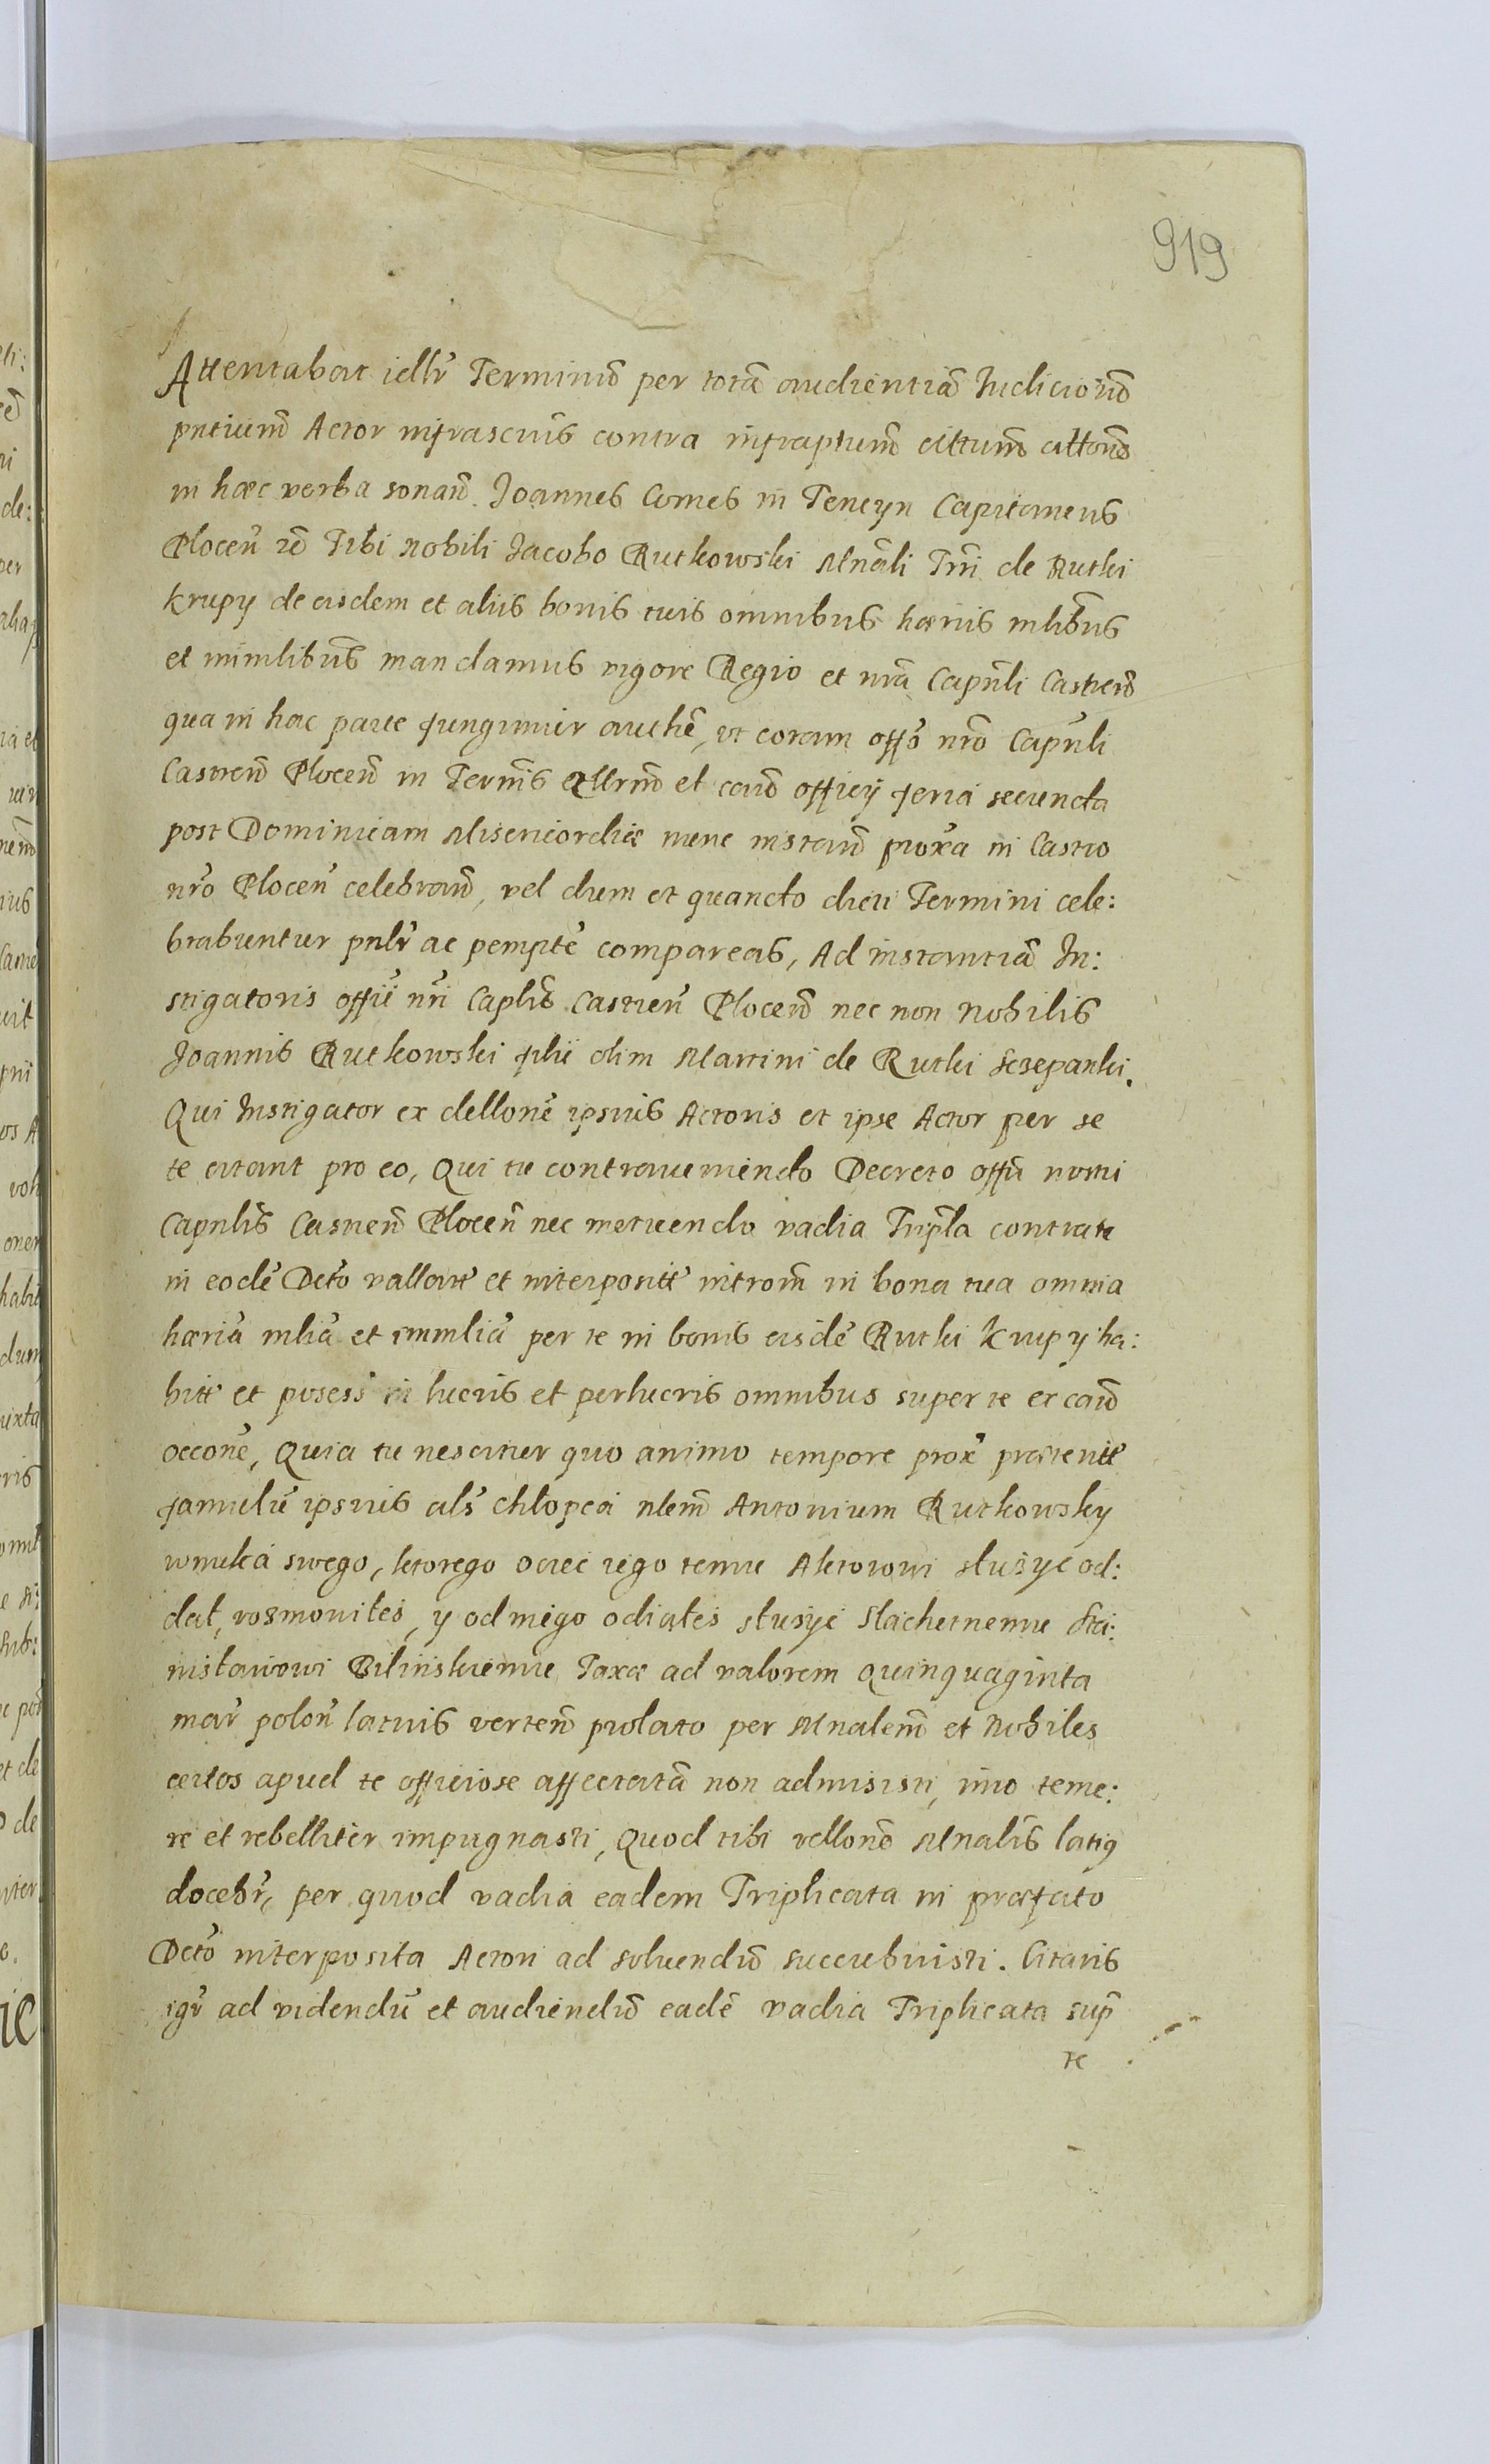 919
Attentabat idlr̃ Terminũ per totã audientiã Iudiciorũ
pntiumũ Actor infrascrĩs contra infraptumũ cittumũ cittonẽ
in hæc verba sonañ. Joannes Comes in Tencyn Capitaneus
Plocen̄ rẽ Tibi Nobili Jacobo Rutkowski Mnãli Tnĩ de Rutki
Krupy de eisdem et aliis bonis tuis omnibus hæriis mlibus
et immlibus mandamus vigore Regio et nrã Capnli Castreñ
qua in hac parte fungimur authẽ, vt coram offõ nrõ Capnli
Castreñ Ploceñ in Termis qllrmũ et cauũ officij feria secunda
post Dominicam Misericordiæ nunc instañ proxã in Castro
nrõ Plocen̄ celebrañ, vel dum et quando dicti Termini cele:
brabuntur pnlr̃ ac pempte compareas, Ad instantiã In:
stigatoris offĩi nrĩ Caplis Castren̄ Ploceñ nec non Nobilis
Joannis Rutkowski filii olim Martini de Rutki Sczepanki.
Qui Instigator ex dellonẽ ipsius Actoris et ipse Actor per se
te citant pro eo, Qui tu contraueniendo Decreto offĩi nostri
Capnlis Castreñ Plocen̄ nec metuendo vadia Tripla contra te
in eodẽ Dcto vallatt et interpositt introm̃ in bona tua omnia
hæria mlia et immlia per te in bonis eisdẽ Rutki Krupy ha:
bitt et posess in lucris et perlucris omnibus super te ex cauñ
occonẽ, Quia tu nescitur quo animo tempore prox̃ præteritt
famulũ ipsius als chłopca nlem̃ Antonium Rutkowsky
wnuka swego, ktorego ociec iego temu Aktorowi słuzyc od:
dał, rozmowiłes, y od niego odiąłes słuzyć slachetnemu Sta:
nisławowi Bilinskiemu Taxæ ad valorem quinquaginta
mar̃ polon̄ latius verteñ prolato per Mnalem̃ et Nobiles
certos apud te officiose affectatã non admisisti, imo teme:
re et rebelliter impugnasti, Quod tibi rellonẽ Mnalis latiq
docebr̃, per quod vadia eadem Triplicata in præfato
Dctõ interposita Actori ad soluendũ succubuisti. Citaris
igr̃ ad videndũ et audiendũ eadẽ vadia Triplicata sup̃
te